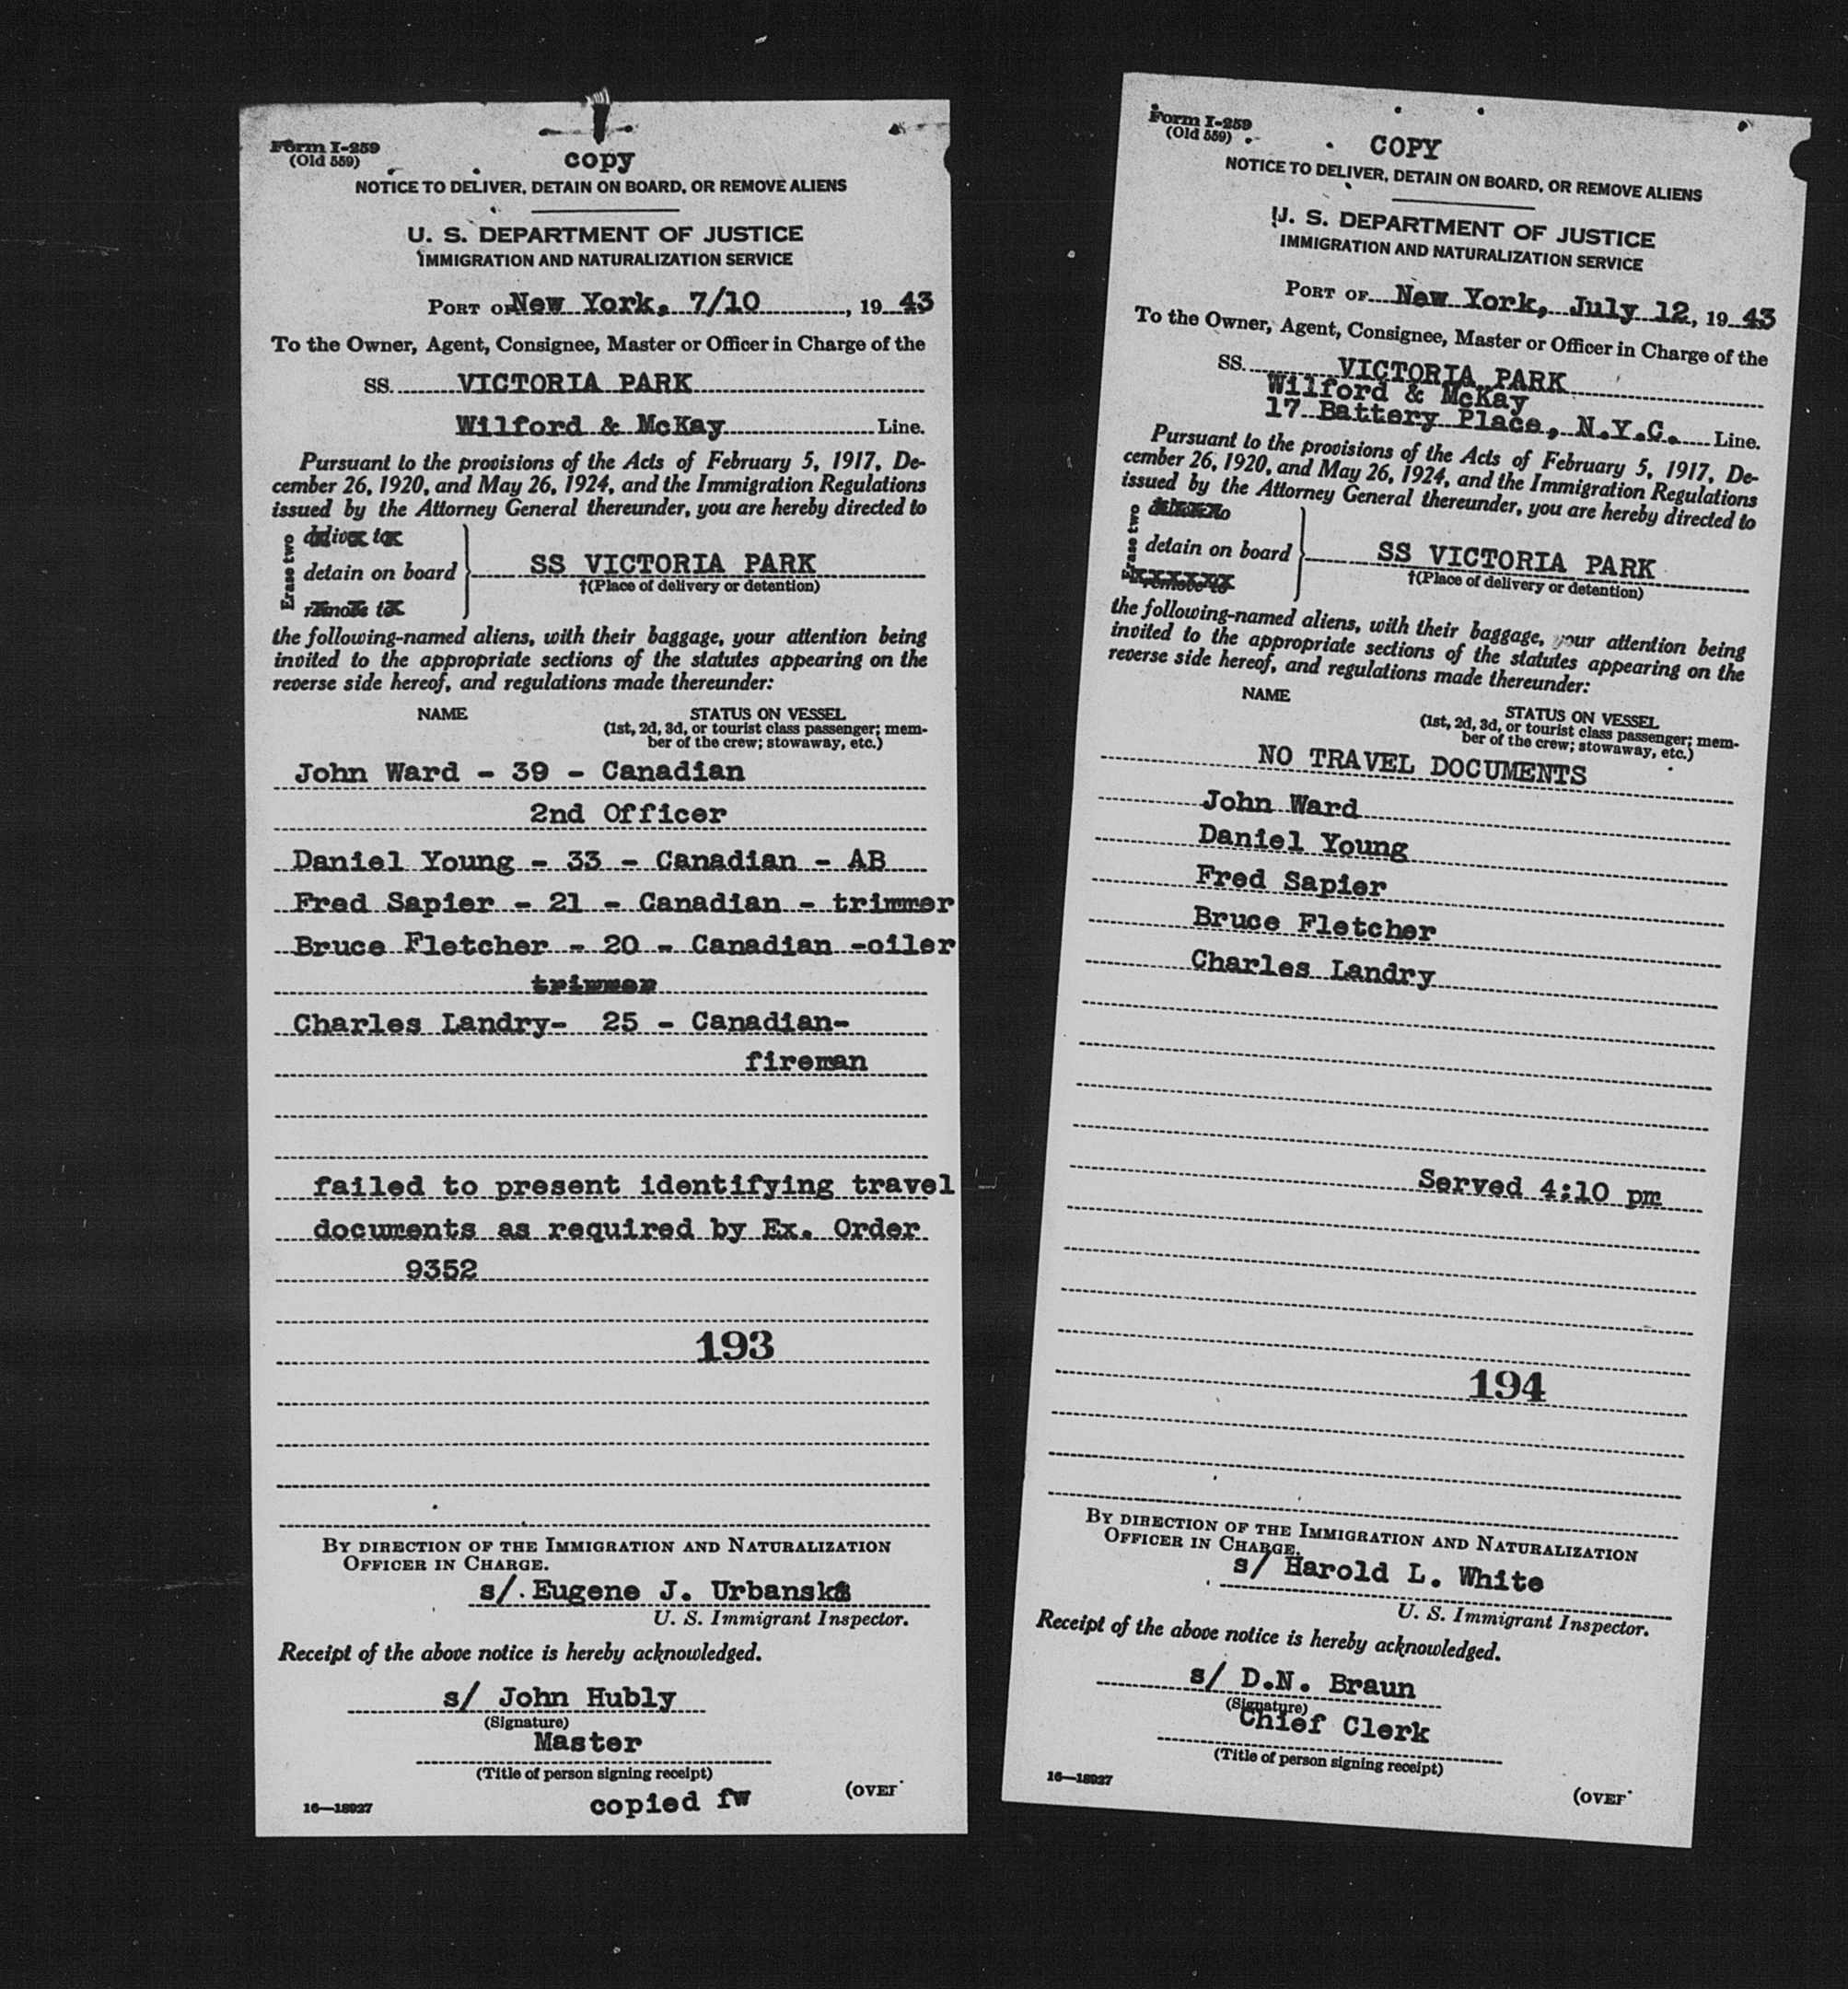 Form I-259
(Old 559)
copy
NOTICE TO DELIVER, DETAIN ON BOARD, OR REMOVE ALIENS
U. S. DEPARTMENT OF JUSTICE
IMMIGRATION AND NATURALIZATION SERVICE
PORT OF New York, 7/10, 19 43
To the Owner, Agent, Consignee, Master or Officer in Charge of the
SS. VICTORIA PARK
Wilford & McKay Line.
Pursuant to the provisions of the Acts of February 5, 1917, De-
cember 26, 1920, and May 26, 1924, and the Immigration Regulations
issued by the Attorney General thereunder, you are hereby directed to
Erase two
deliver to
detain on board
remove to
SS VICTORIA PARK
†(Place of delivery or detention)
the following-named aliens, with their baggage, your attention being
invited to the appropriate sections of the statutes appearing on the
reverse side hereof, and regulations made thereunder:
NAME STATUS ON VESSEL
(1st, 2d, 3d, or tourist class passenger; mem-
ber of the crew; stowaway, etc.)
John Ward - 39 - Canadian
2nd Officer
Daniel Young - 33 - Canadian - AB
Fred Sapier - 21 - Canadian - trimmer
Bruce Fletcher - 20 - Canadian -oiler
trimmer
Charles Landry- 25 - Canadian-
fireman
failed to present identifying travel
documents as required by Ex. Order
9352
193
BY DIRECTION OF THE IMMIGRATION AND NATURALIZATION
OFFICER IN CHARGE.
s/ Eugene J. Urbanski
U. S. Immigrant Inspector.
Receipt of the above notice is hereby acknowledged.
s/ John Hubly
(Signature)
Master
(Title of person signing receipt)
16—18927 copied fw (OVER
Form I-259
(Old 559)
COPY
NOTICE TO DELIVER, DETAIN ON BOARD, OR REMOVE ALIENS
U. S. DEPARTMENT OF JUSTICE
IMMIGRATION AND NATURALIZATION SERVICE
PORT OF New York, July 12, 19 43
To the Owner, Agent, Consignee, Master or Officer in Charge of the
SS. VICTORIA PARK
Wilford & McKay
17 Battery Place, N.Y.C. Line.
Pursuant to the provisions of the Acts of February 5, 1917, De-
cember 26, 1920, and May 26, 1924, and the Immigration Regulations
issued by the Attorney General thereunder, you are hereby directed to
Erase two
detain on board
remove to
SS VICTORIA PARK
†(Place of delivery or detention)
the following-named aliens, with their baggage, your attention being
invited to the appropriate sections of the statutes appearing on the
reverse side hereof, and regulations made thereunder:
NAME STATUS ON VESSEL
(1st, 2d, 3d, or tourist class passenger; mem-
ber of the crew; stowaway, etc.)
NO TRAVEL DOCUMENTS
John Ward
Daniel Young
Fred Sapier
Bruce Fletcher
Charles Landry
Served 4:10 pm
194
BY DIRECTION OF THE IMMIGRATION AND NATURALIZATION
OFFICER IN CHARGE.
s/ Harold L. White
U. S. Immigrant Inspector.
Receipt of the above notice is hereby acknowledged.
s/ D.N. Braun
(Signature)
Chief Clerk
(Title of person signing receipt)
16—18927 (OVER